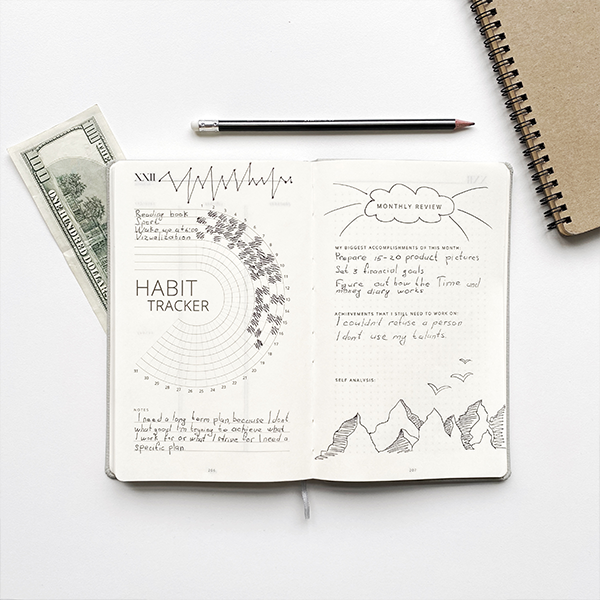 100
ONE HUNDRED DOLLARS
XXII
Reading book
Sport
Wake up at
Vizualization
HABIT
TRACKER
1
2
3
10
11
12
13
14
15
16
22
23
24
25
26
27
28
29
30
31
NOTES
I need a long term plan because I don't
what good I'm trying to achieve what
I work for or what I strive for I need a
specific plan
MONTHLY REVIEW
MY BIGGEST ACCOMPLISHMENTS OF THIS MONTH:
Prepare 15-20 product pictures
Set 3 financial goals
Figure out how the Time and
money diary works
ACHIEVEMENTS THAT I STILL NEED TO WORK ON:
I couldn't refuse a person
I dont use my talents.
SELF ANALYSIS: